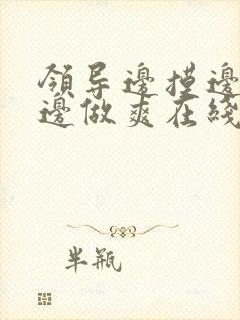 領导邊摸邊
邊做爽在綫
半瓶